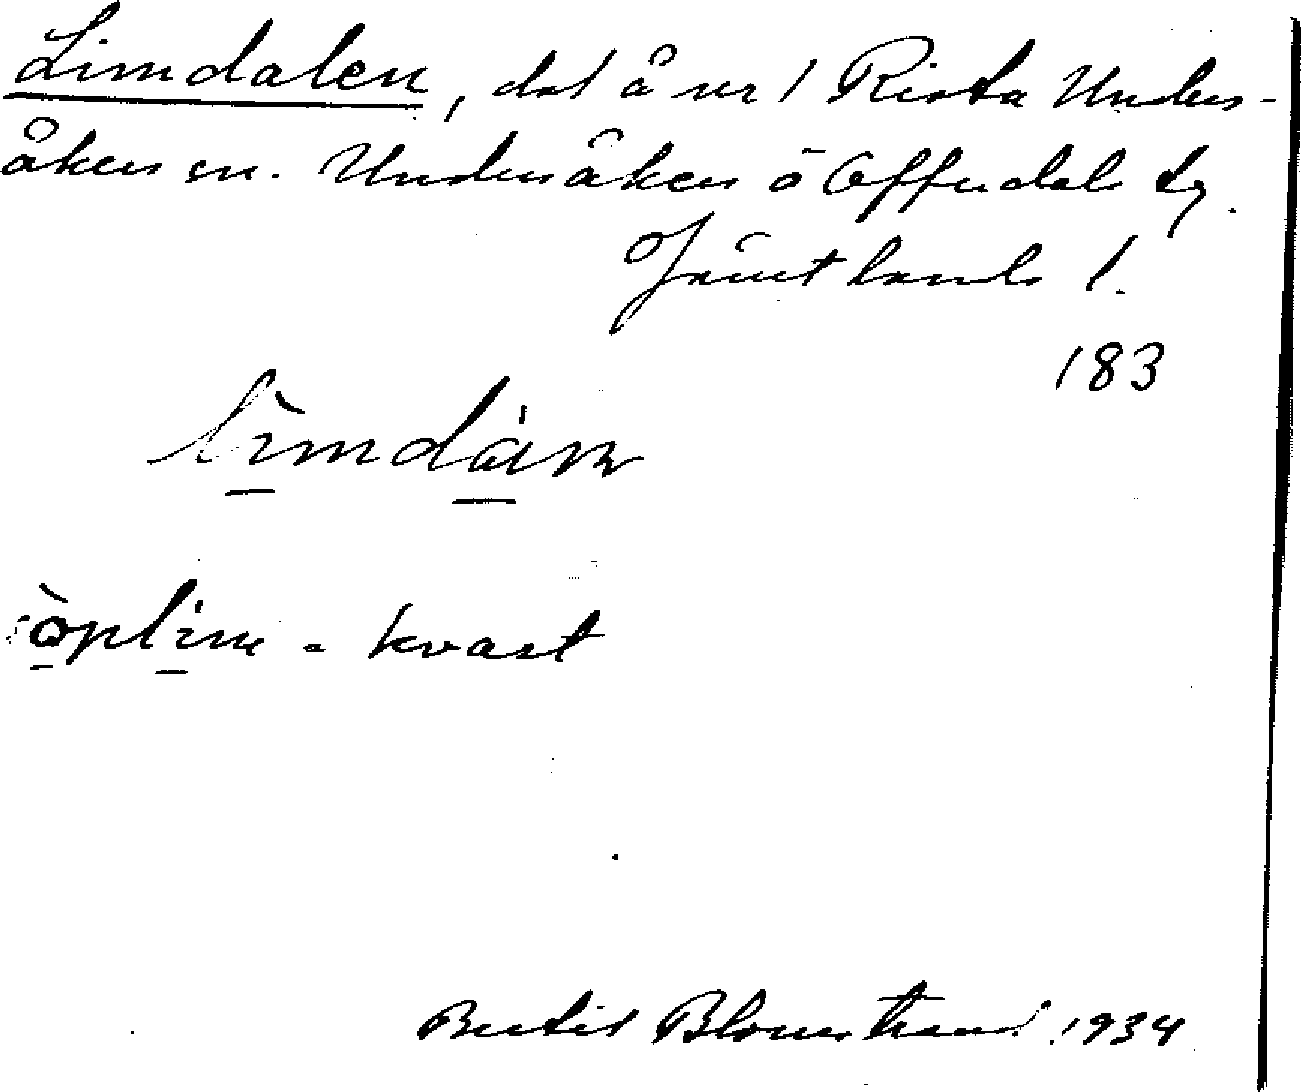 Limdalen, dal å nr 1 Rista Unders-
åkers sn. Undersåkers o Offerdals tg.
Jämtlands l.
183
lìmdáɴ
sòplim = kvast
Bertil Blomstrand 1934